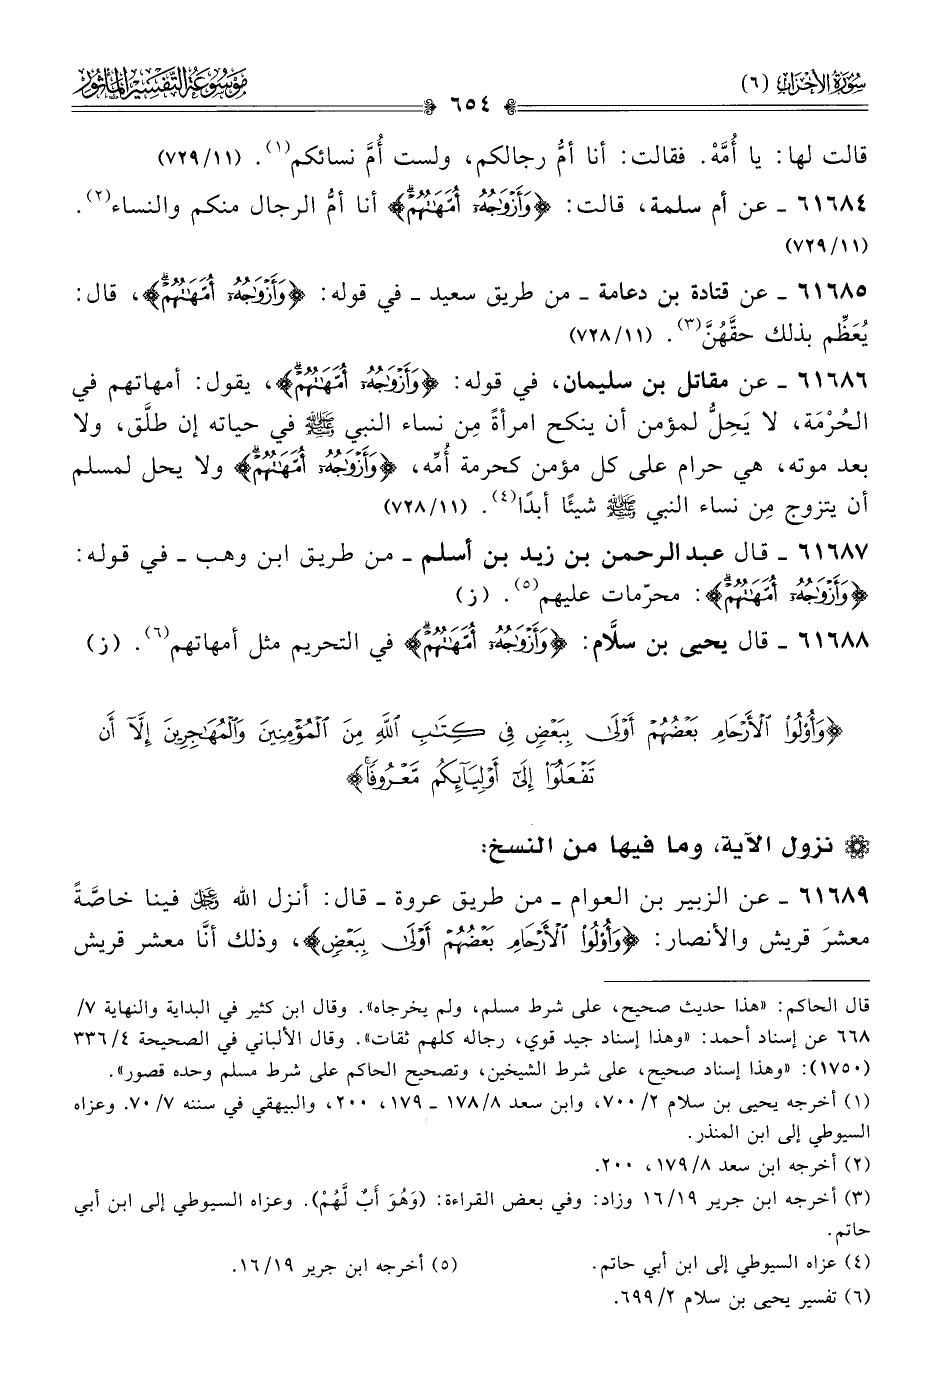 سورة الأحزاب (٦)
موسوعة التفسير المأثور
٦٥٤
قالت لها: يا أُمَّهْ. فقالت: أنا أمُّ رجالكم، ولست أُمَّ نسائكم(١). (٧٢٩/١١)
٦١٦٨٤ ـ عن أم سلمة، قالت: ﴿وَأَزْوَٰجُهُۥٓ أُمَّهَٰتُهُمْۗ﴾ أنا أمُّ الرجال منكم والنساء(٢).
(٧٢٩/١١)
٦١٦٨٥ ـ عن قتادة بن دعامة ـ من طريق سعيد ـ في قوله: ﴿وَأَزْوَٰجُهُۥٓ أُمَّهَٰتُهُمْۗ﴾، قال:
يُعَظِّم بذلك حقَّهُنَّ(٣). (٧٢٨/١١)
٦١٦٨٦ ـ عن مقاتل بن سليمان، في قوله: ﴿وَأَزْوَٰجُهُۥٓ أُمَّهَٰتُهُمْۗ﴾، يقول: أمهاتهم في
الحُرْمَة، لا يَحِلُّ لمؤمن أن ينكح امرأةً مِن نساء النبي ﷺ في حياته إن طلَّق، ولا
بعد موته، هي حرام على كل مؤمن كحرمة أُمِّه، ﴿وَأَزْوَٰجُهُۥٓ أُمَّهَٰتُهُمْۗ﴾ ولا يحل لمسلم
أن يتزوج مِن نساء النبي ﷺ شيئًا أبدًا(٤). (٧٢٨/١١)
٦١٦٨٧ ـ قال عبد الرحمن بن زيد بن أسلم ـ من طريق ابن وهب ـ في قوله:
﴿وَأَزْوَٰجُهُۥٓ أُمَّهَٰتُهُمْۗ﴾: محرّمات عليهم(٥). (ز)
٦١٦٨٨ ـ قال يحيى بن سلَّام: ﴿وَأَزْوَٰجُهُۥٓ أُمَّهَٰتُهُمْۗ﴾ في التحريم مثل أمهاتهم(٦). (ز)
﴿وَأُوْلُواْ ٱلْأَرْحَامِ بَعْضُهُمْ أَوْلَىٰ بِبَعْضٍ فِي كِتَٰبِ ٱللَّهِ مِنَ ٱلْمُؤْمِنِينَ وَٱلْمُهَٰجِرِينَ إِلَّآ أَن
تَفْعَلُوٓاْ إِلَىٰٓ أَوْلِيَآئِكُم مَّعْرُوفًاۚ﴾
نزول الآية، وما فيها من النسخ:
٦١٦٨٩ ـ عن الزبير بن العوام ـ من طريق عروة ـ قال: أنزل الله ﷿ فينا خاصَّةً
معشرَ قريش والأنصار: ﴿وَأُوْلُواْ ٱلْأَرْحَامِ بَعْضُهُمْ أَوْلَىٰ بِبَعْضٍ﴾، وذلك أنَّا معشر قريش
قال الحاكم: «هذا حديث صحيح، على شرط مسلم، ولم يخرجاه». وقال ابن كثير في البداية والنهاية ٧/
٦٦٨ عن إسناد أحمد: «وهذا إسناد جيد قوي، رجاله كلهم ثقات». وقال الألباني في الصحيحة ٣٣٦/٤
(١٧٥٠): «وهذا إسناد صحيح، على شرط الشيخين، وتصحيح الحاكم على شرط مسلم وحده قصور».
(١) أخرجه يحيى بن سلام ٧٠٠/٢، وابن سعد ١٧٨/٨ ـ ١٧٩، ٢٠٠، والبيهقي في سننه ٧٠/٧. وعزاه
السيوطي إلى ابن المنذر.
(٢) أخرجه ابن سعد ١٧٩/٨، ٢٠٠.
(٣) أخرجه ابن جرير ١٦/١٩ وزاد: وفي بعض القراءة: (وَهُوَ أَبٌ لَّهُمْ). وعزاه السيوطي إلى ابن أبي
حاتم.
(٤) عزاه السيوطي إلى ابن أبي حاتم.
(٥) أخرجه ابن جرير ١٦/١٩.
(٦) تفسير يحيى بن سلام ٦٩٩/٢.